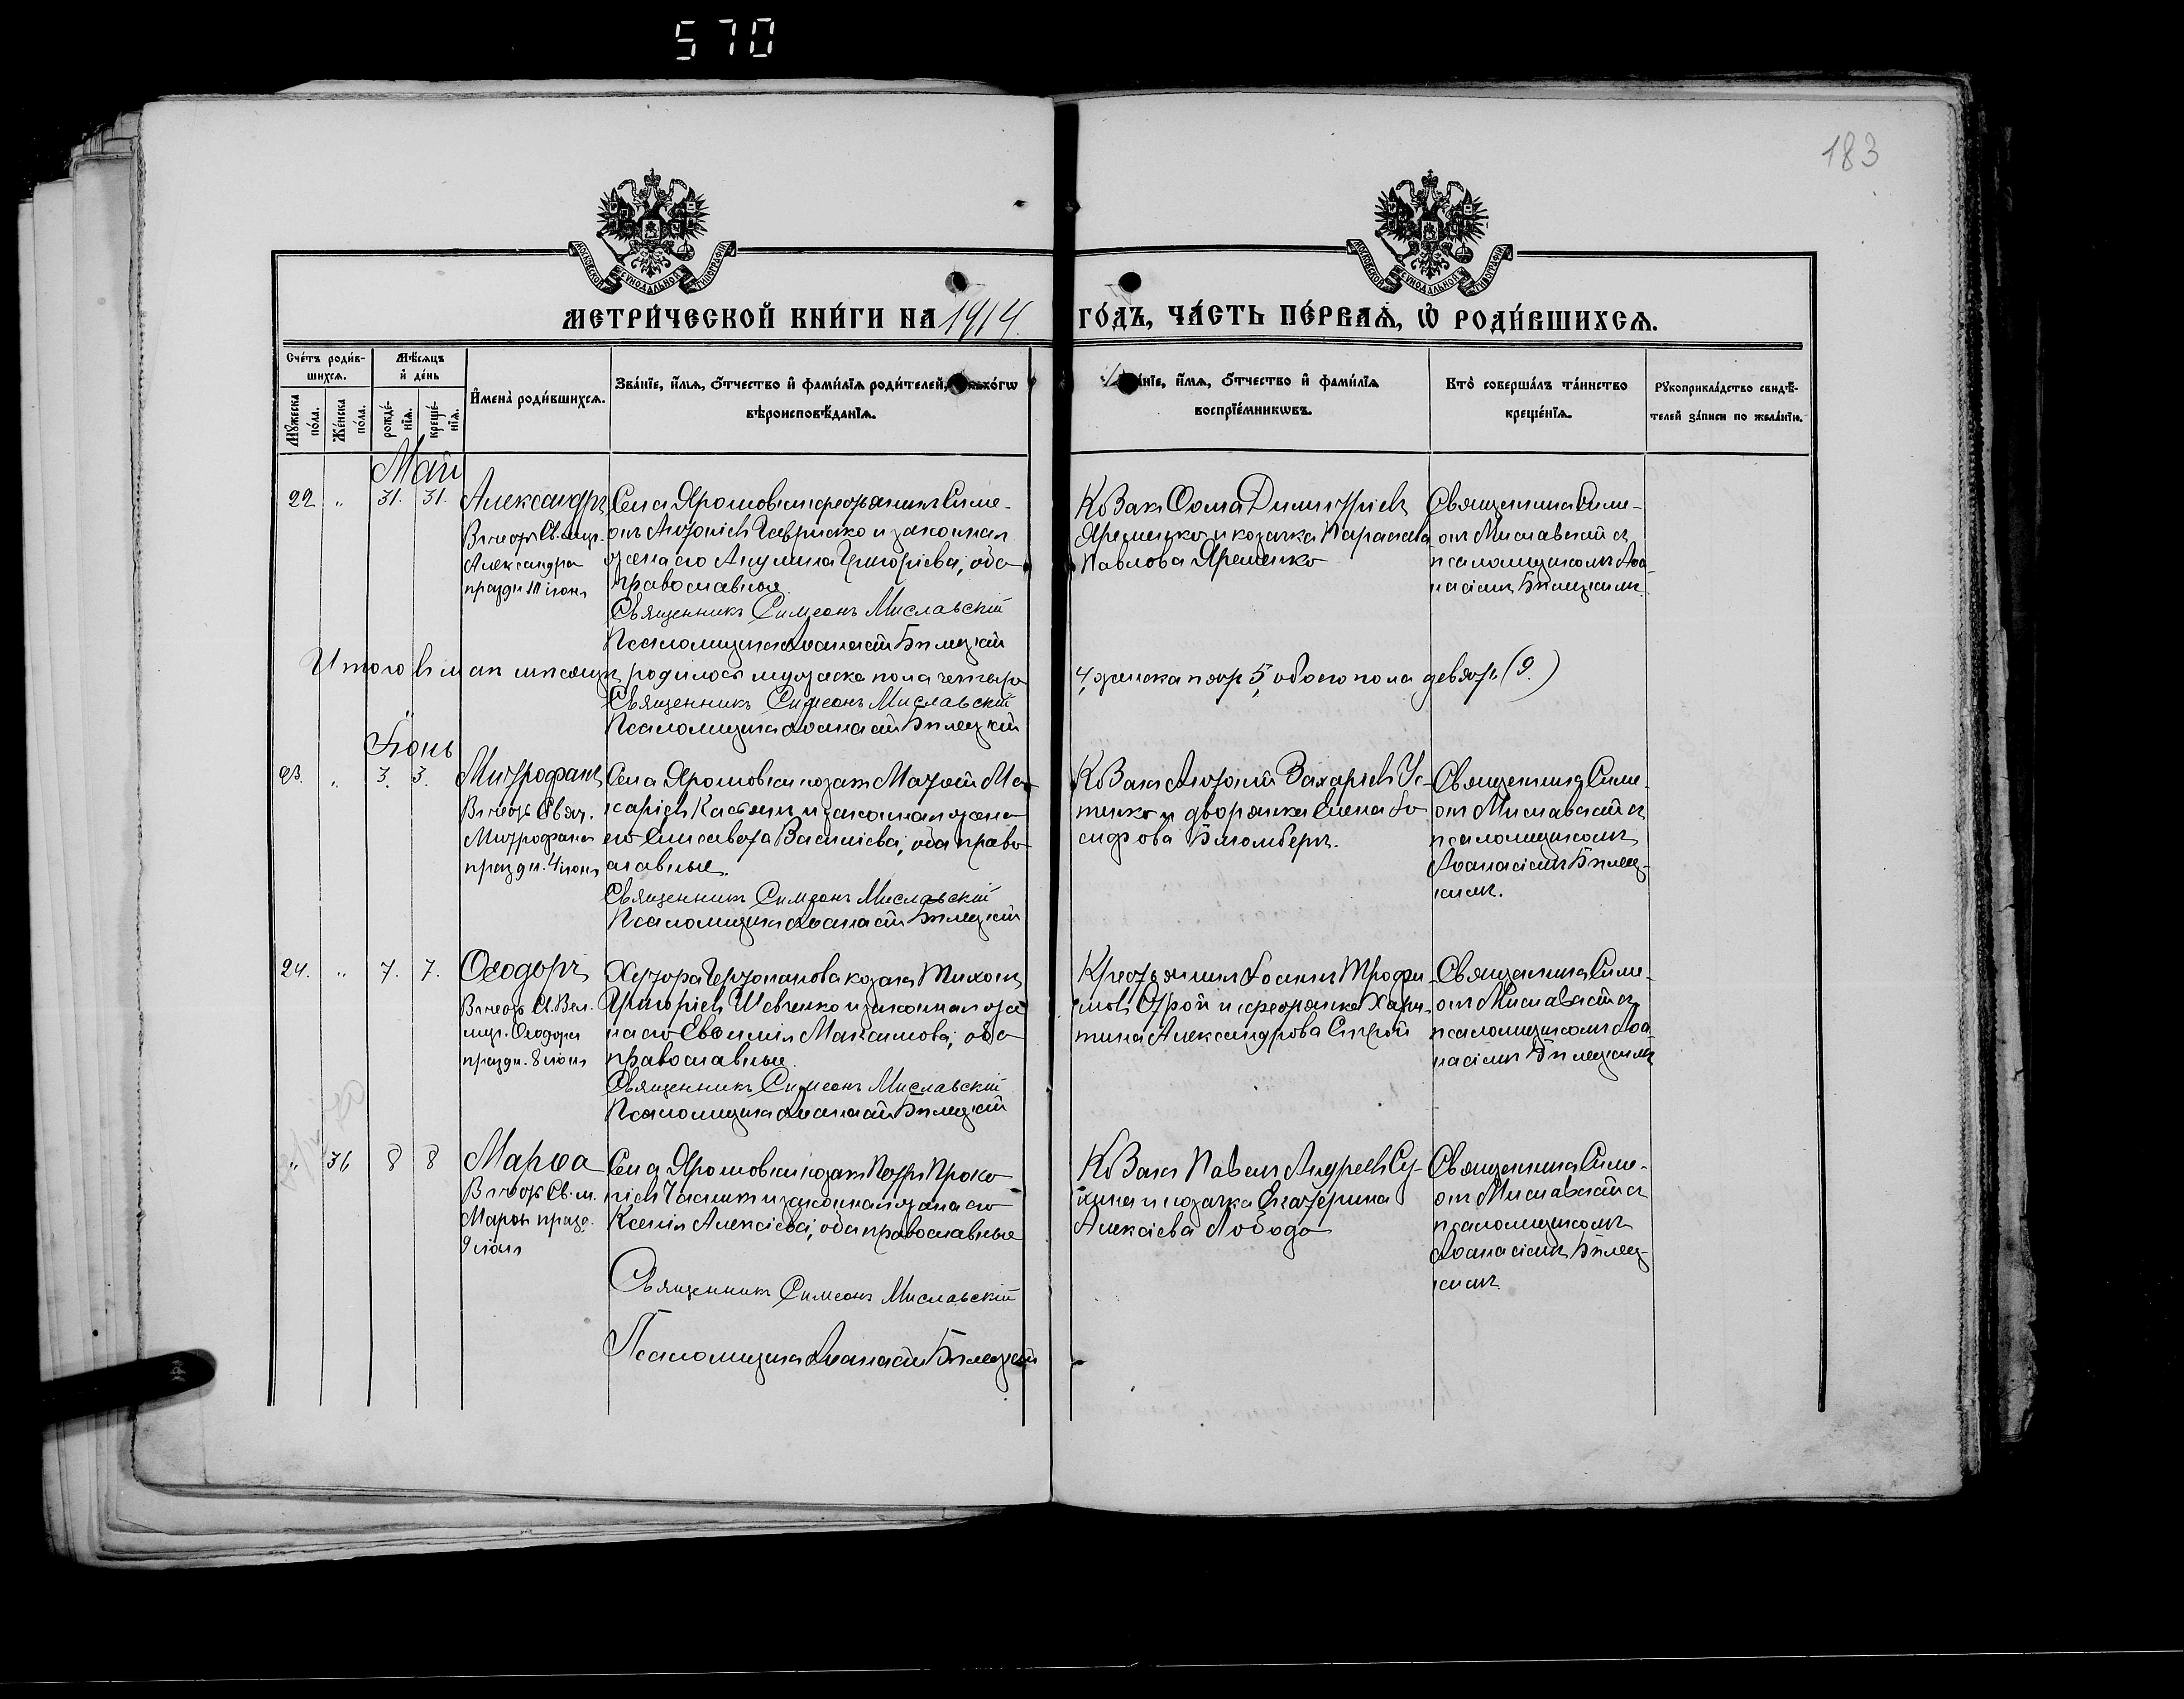 570
183
МОСКОВСКОЙ СУНОДАЛЬНОЙ ТИПОГРАФІИ
МОСКОВСКОЙ СУНОДАЛЬНОЙ ТИПОГРАФІИ
МЕТРИ́ЧЕСКОЙ КНИ́ГИ НА 1914 ГО́ДЪ, ЧА́СТЬ ПЕ́РВАѦ, Ѡ҆ РОДИ́ВШИХСѦ.
Сче́тъ роди́в-
шихсѧ.
Мѣ́сѧцъ
и҆ де́нь
Мꙋ́жеска по́ла.
Же́нска по́ла.
рожде́-
нїѧ.
креще́-
нїѧ.
И҆мена̀ роди́вшихсѧ.
Зва́нїе, и҆́мѧ, ѻ҆́тчество и҆ фами́лїѧ роди́телей,
вѣроисповѣ́данїѧ.
и҆́мѧ, ѻ҆́тчество и҆ фами́лїѧ
воспрїе́мникѡвъ.
Кто̀ соверша́лъ та́инство
креще́нїѧ.
Рꙋкоприкла́дство свидѣ́-
телей за́писи по жела́нїю.
Май
22 „ 31. 31. Александръ
Въ честь Св. муч.
Александра
праздн. 10 іюня
Села Ярошовки крестьянинъ Симе-
онъ Антоніевъ Гавришко и законная
жена его Акулина Григоріева, оба
православные
Священникъ Симеонъ Миславскій
Псаломщикъ Аѳанасій Билецкій
Козакъ Ѳома Димитріевъ
Яременко и козачка Параскева
Павлова Яременко
Священникъ Симе-
онъ Миславскій съ
псаломщикомъ Аѳа-
насіемъ Билецкимъ.
Итого въ маѣ мѣсяцѣ родилось мужеска пола четыре
4, женска пять 5, обоего пола девять (9.)
Священникъ Симеонъ Миславскій
Псаломщикъ Аѳанасій Билецкій
Іюнь
23. „ 3. 3. Митрофанъ
Въ честь Свят.
Митрофана
праздн. 4 іюня
Села Ярошовки козакъ Матѳей Ма-
каріевъ Касьянъ и законная жена
его Елисавета Василіева, оба право-
славные.
Священникъ Симеонъ Миславскій
Псаломщикъ Аѳанасій Билецкій
Козакъ Антоній Захаріевъ Ус-
тенко и дворянка Елена Іо-
сифова Блюмберъ.
Священникъ Симе-
онъ Миславскій съ
псаломщикомъ
Аѳанасіемъ Билец-
кимъ.
24. „ 7. 7. Ѳеодоръ
Въ честь Св. Вел.
муч. Ѳеодора
праздн. 8 іюня
Хутора козакъ Тихонъ
Григоріевъ Шевченко и законная же-
на его Евѳимія Максимова, оба
православные.
Священникъ Симеонъ Миславскій
Псаломщикъ Аѳанасій Билецкій
Крестьянинъ Іоаннъ Трофи-
мовъ и крестьянка Хари-
тина Александрова
Священникъ Симе-
онъ Миславскій съ
псаломщикомъ Аѳа-
насіемъ Билецкимъ
„ 36 8 8 Марѳа
Въ честь Св. м.
Марѳы празд.
9 іюня
Села Ярошовки козакъ Петръ Проко-
піевъ Часникъ и законная жена его
Ксенія Алексіева, оба православные
Священникъ Симеонъ Миславскій
Псаломщикъ Аѳанасій Билецкій
Козакъ Павелъ Андреевъ Су-
хина и козачка Екатерина
Алексіева Лобода
Священникъ Симе-
онъ Миславскій съ
псаломщикомъ
Аѳанасіемъ Билец-
кимъ